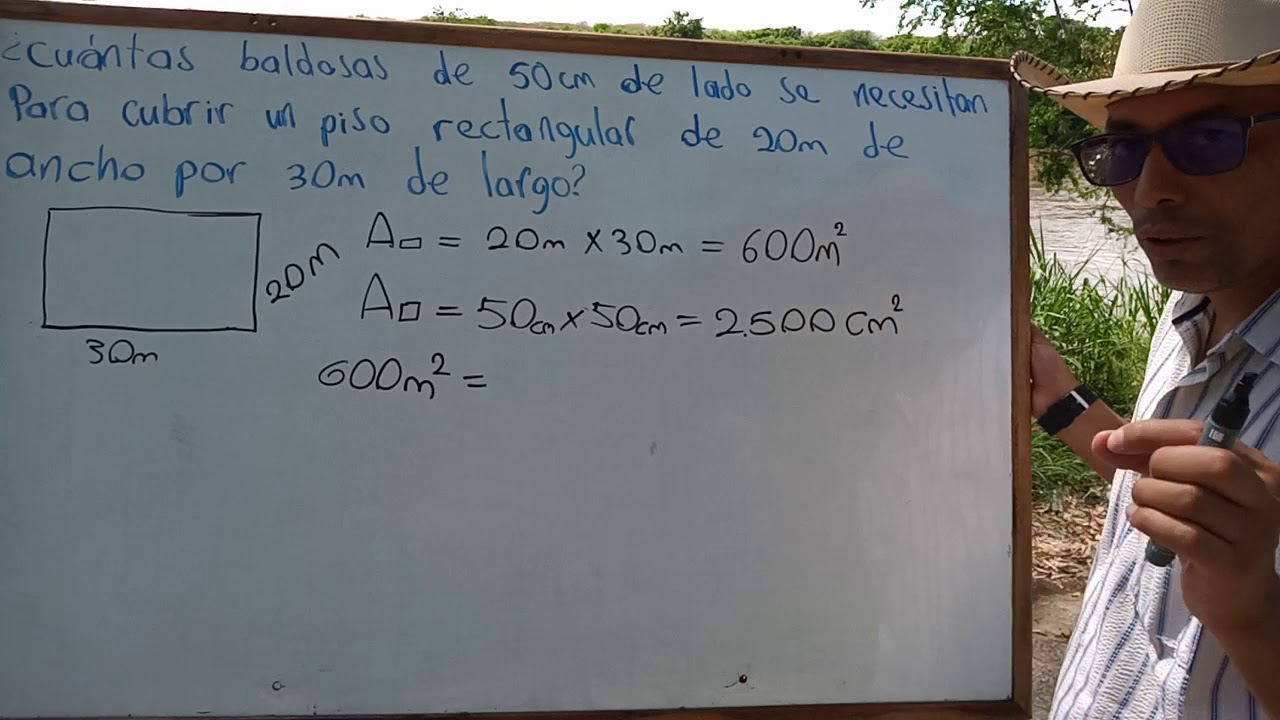 ¿cuántas baldosas de 50cm de lado se necesitan
Para cubrir un piso rectangular de 20m de
ancho por 30m de largo?
20m
30m
A▭ = 20m x 30m = 600m²
A□ = 50cm x 50cm = 2.500 cm²
600m² =